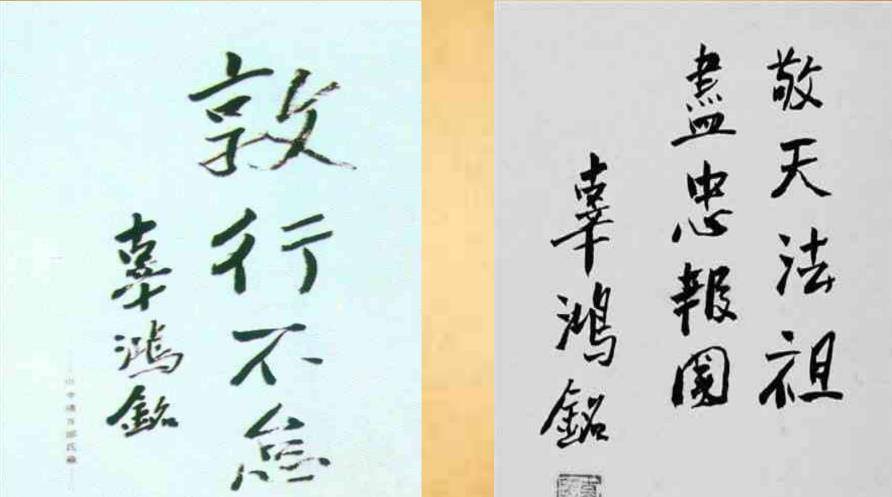 敦行不怠
辜鴻銘
敬天法祖
盡忠報國
辜鴻銘